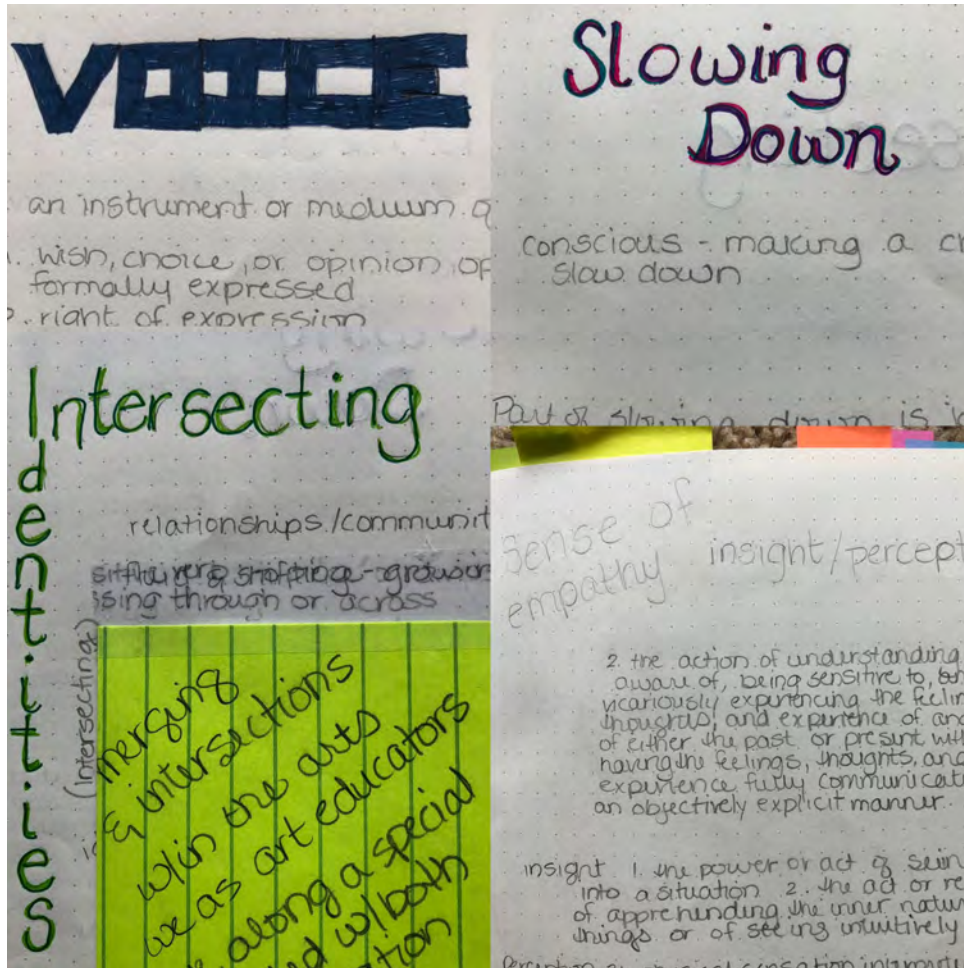 VOICE
an instrument or medium
wish, choice, or opinion
formally expressed
right of expression
Slowing
Down
conscious - making a
slow down
Part of slowing down is
Intersecting
Identities
relationships/communit
shifting - growing
sing through or across
(intersecting)
merging
& intersections
w/in the arts
we as art educators
along a special
w/both
Sense of
empathy
insight/percept
2. the action of understanding
aware of, being sensitive to,
vicariously experiencing the feelin
thoughts, and experience of
of either the past or present
having the feelings, thoughts, and
experience fully communicat
an objectively explicit manner.
insight 1. the power or act of seein
into a situation 2. the act or re
of apprehending the inner natur
things or of seeing intuitively